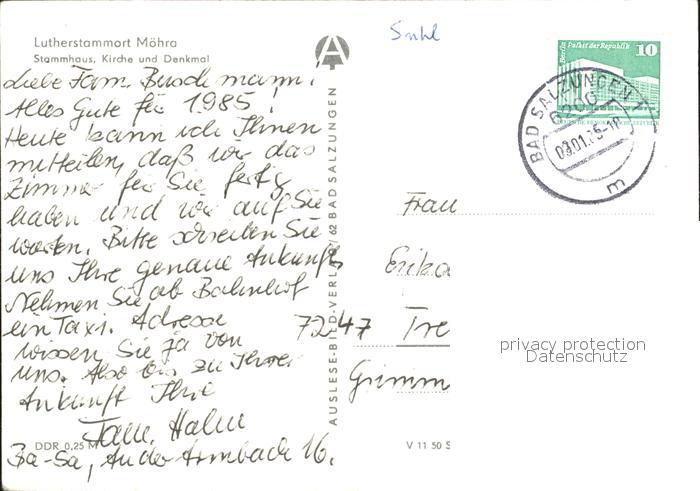 Lutherstammort Möhra
Stammhaus, Kirche und Denkmal
Suhl
Liebe Fam. Buschmann!
Alles Gute für 1985!
Heute kann ich Ihnen
mitteilen, daß wir das
Zimmer für Sie fertig
haben und wir auf Sie
warten. Bitte schreiben Sie
uns Ihre genaue Ankunft.
Nehmen Sie ab Bahnhof
ein Taxi. Adresse
wissen Sie ja von
uns. Also bis zu Ihrer
Ankunft Ihre
Fam. Hahn
Ba-Sa, An der Armbach 16.
DDR 0,25 M
AUSLESE-BILD-VERLAG / 62 BAD SALZUNGEN
Berlin Palast der Republik 10
BAD SALZUNGEN 1
6200
m
Frau
Erika
7247 Tre
Grimm
V 11 50 S
privacy protection
Datenschutz